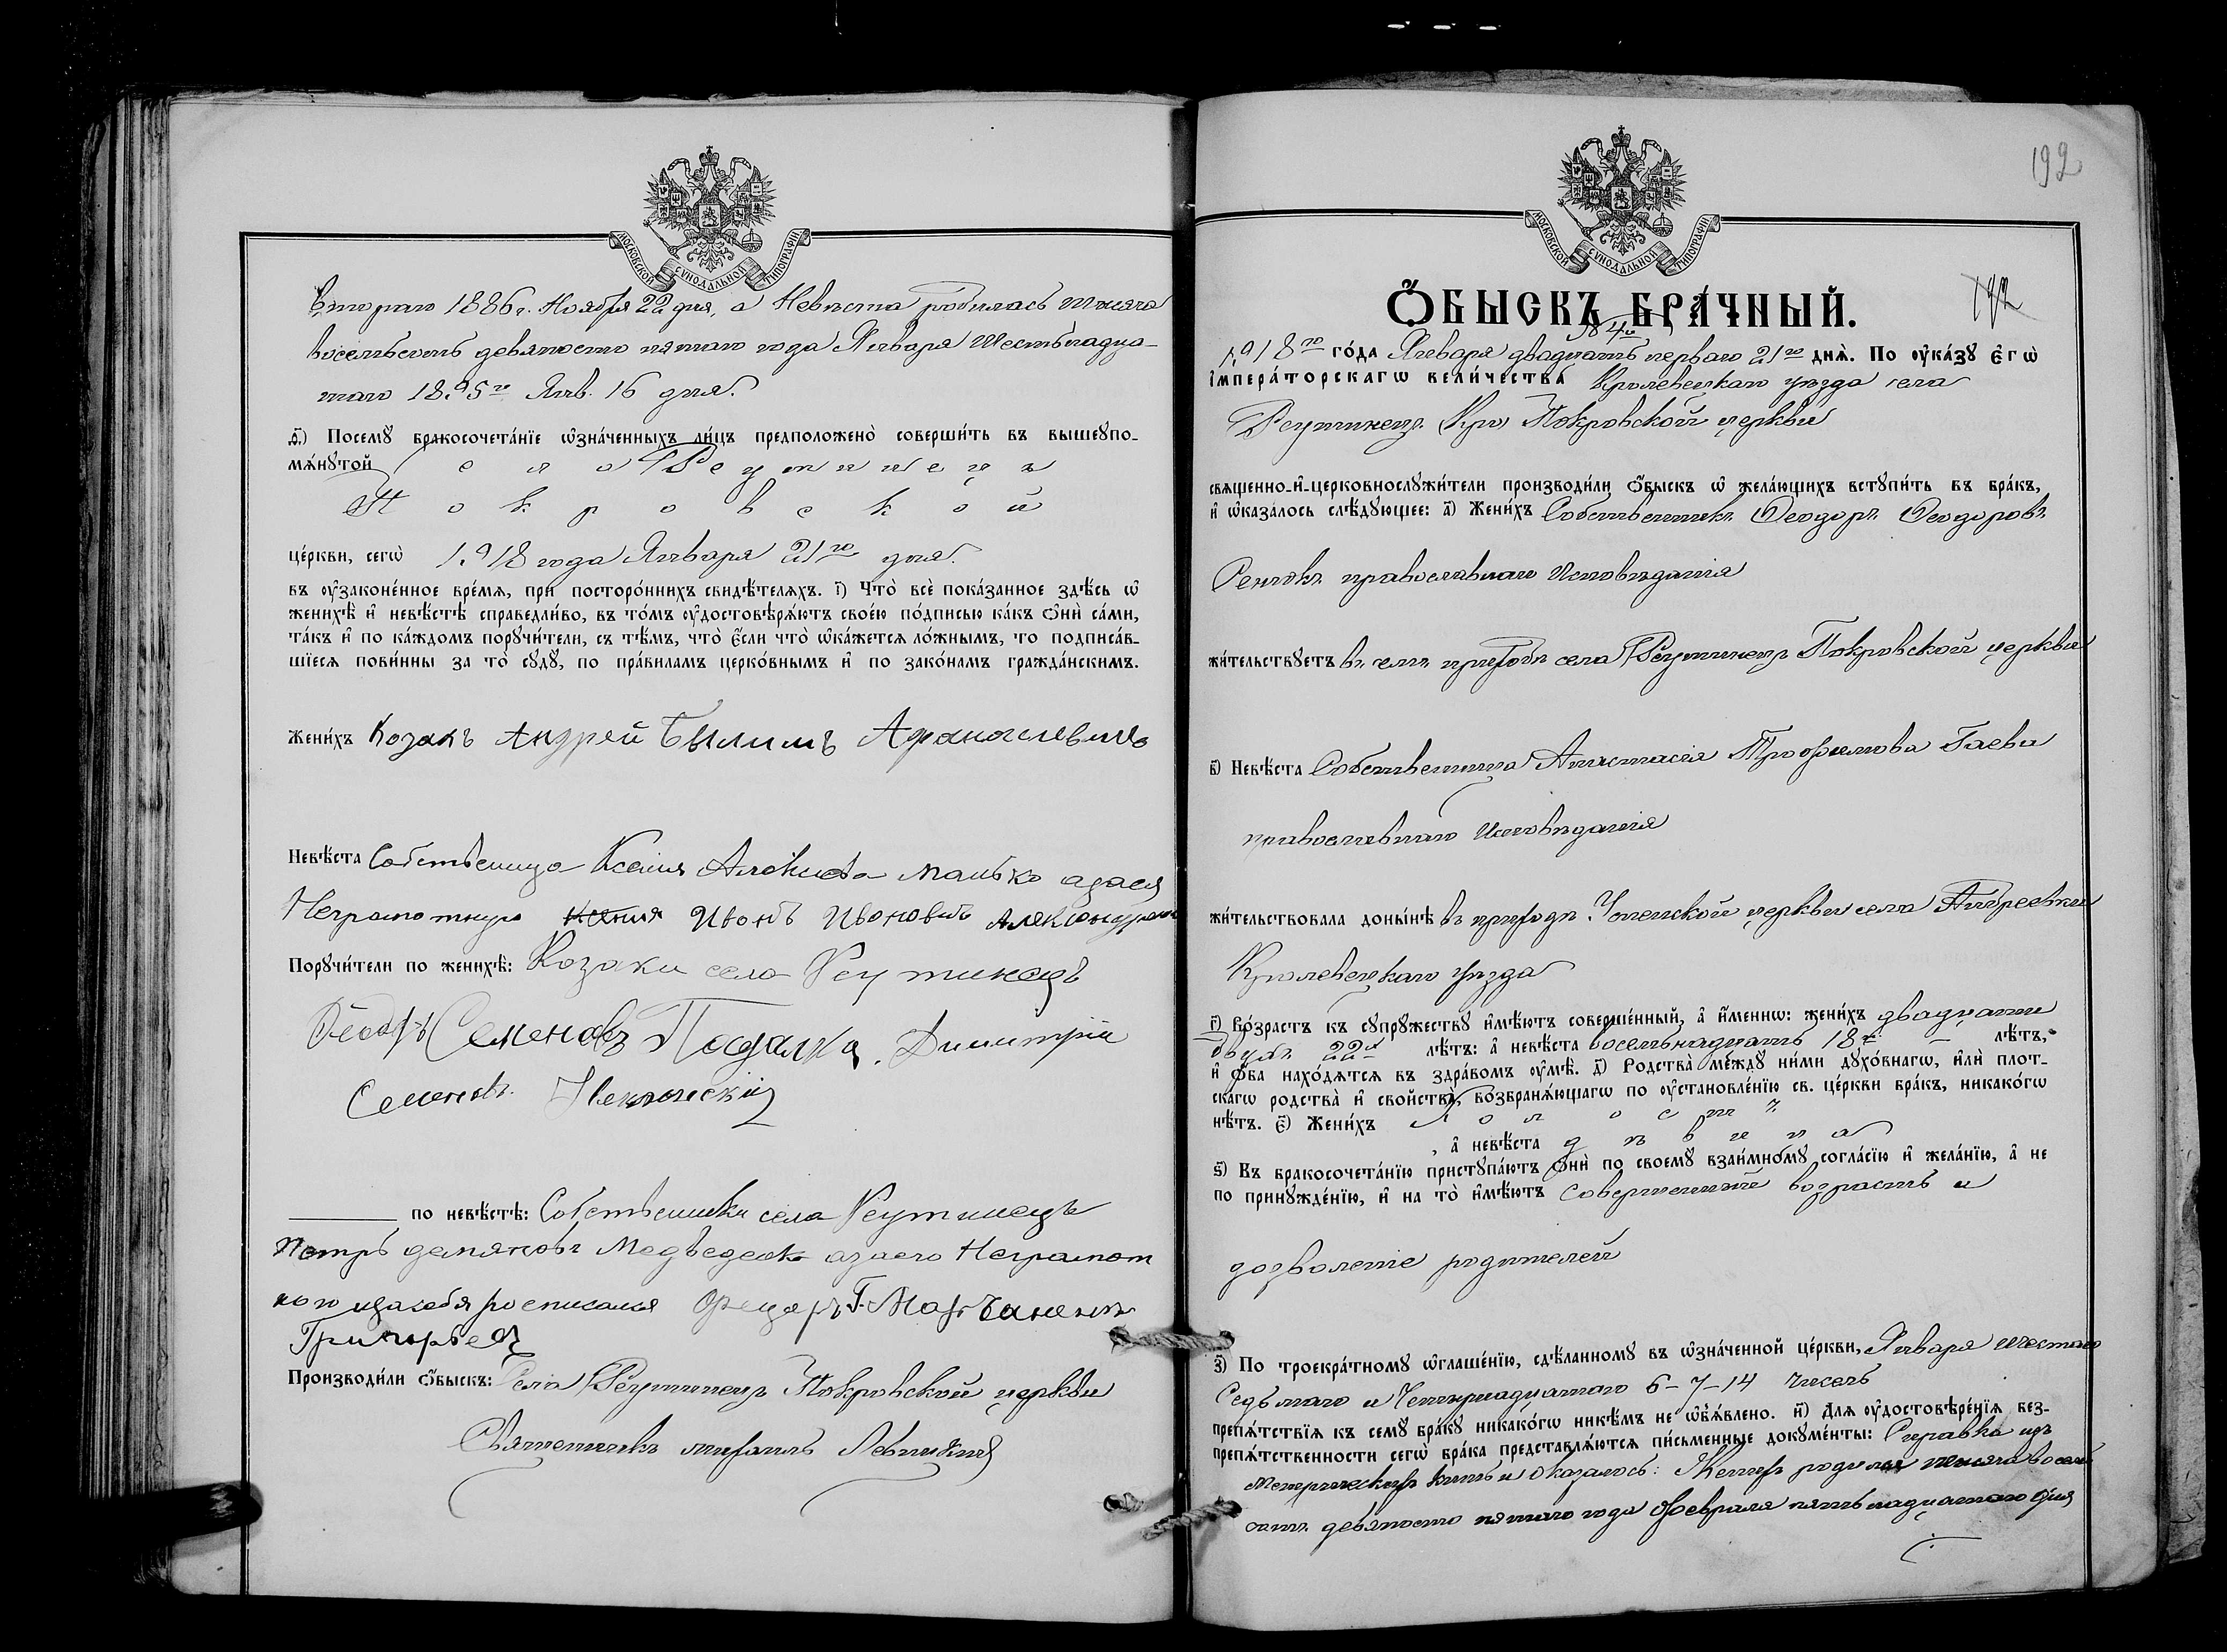 МОСКОВСКОЙ СѴНОДАЛЬНОЙ ТИПОГРАФІИ
втораго 1886 г. Ноября 22 дня, а Невѣста родилась тысяча
восемьсотъ девяносто пятаго года Января Шестьнадца-
таго 1895 го Янв. 16 дня.
д҃.) Посемꙋ̀ бракосочета́нїе ѡ҆зна́ченныхъ ли́цъ предположено̀ соверши́ть въ вышеупо-
мѧ́нꙋтой села Реутинецъ
Покровской
це́ркви, сегѡ̀ 1918 года Января 21 го дня.
въ оу҆зако́ненное вре́мѧ, при посторо́ннихъ свидѣ́телѧхъ. і҃) Что̀ всѐ пока́занное здѣ́сь ѡ҆
женихѣ̀ и҆ невѣ́стѣ справедли́во, въ то́мъ оу҆достовѣрѧ́ютъ свое́ю по́дписью ка́къ ѻ҆нѝ са́ми,
та́къ и҆ по ка́ждомъ порꙋчи́тели, съ тѣ́мъ, что̀ є҆́сли что̀ ѡ҆ка́жетсѧ ло́жнымъ, то подписа́в-
шїесѧ пови́нны за то̀ сꙋдꙋ̀, по пра́виламъ церко́внымъ и҆ по зако́намъ гражда́нскимъ.
Жени́хъ Козакъ Андрей Былимъ Афанасиевичъ
Невѣ́ста Собственица Ксения
Неграмотную Ксения Иванъ Ивановичъ
Порꙋчи́тели по женихѣ̀: Козаки села Реутинецъ
Семеновъ Подалка, Димитрій
Семеновъ
по невѣ́стѣ: Собственики села Реутинецъ
Петръ Медведевъ азаего Неграмот
ного изасебя росписался Г.
Григорьев
Производи́ли ѻ҆́быскъ: Села Реутинецъ Покровской церкви
Священникъ Михаилъ Левицкій
192
МОСКОВСКОЙ СѴНОДАЛЬНОЙ ТИПОГРАФІИ
Ѻ҆́БЫСКЪ БРА́ЧНЫЙ.
192
№ 4й
1918 го го́да Января двадцать перваго 21 го днѧ̀. По оу҆ка́зꙋ Є҆гѡ̀
І҆мпера́торскагѡ вели́чества Кролевецкаго уѣзда села
Реутинецъ Покровской церкви
свѧще́нно-и҆-церковнослꙋжи́тели производи́ли ѻ҆́быскъ ѡ҆ жела́ющихъ встꙋпи́ть въ бра́къ,
и҆ ѡ҆каза́лось слѣ́дꙋющее: а҃) Жени́хъ Собственникъ Ѳеодоръ Ѳеодоровъ
православнаго Исповѣданія
жи́тельствꙋетъ въ семъ приходѣ села Реутинецъ Покровской церкви
в҃) Невѣ́ста Собственница Анастасія Трофимова Гаева
православнаго Исповѣданія
жи́тельствовала доны́нѣ въ приходѣ Успенской церкви села Андреевки
Кролевецкаго уѣзда
г҃) Во́зрастъ къ сꙋпрꙋ́жествꙋ и҆мѣ́ютъ соверше́нный, а҆ и҆́меннѡ: жени́хъ двадцати
двухъ 22х лѣ́тъ: а҆ невѣ́ста восемьнадцать 18 ть лѣ́тъ,
и҆ ѻ҆́ба нахо́дѧтсѧ въ здра́вомъ оу҆мѣ̀. д҃) Родства̀ ме́ждꙋ ни́ми дꙋхо́внагѡ, и҆лѝ плот-
скагѡ родства̀ и҆ свойства̀, возбранѧ́ющагѡ по оу҆становле́нїю св. це́ркви бра́къ, никако́гѡ
нѣ́тъ. є҃) Жени́хъ холостъ
, а҆ невѣ́ста дѣвица
ѕ҃) Въ бракосочета́нїю пристꙋпа́ютъ ѻ҆нѝ по своемꙋ̀ взаи́мномꙋ согла́сїю и҆ жела́нїю, а҆ не
по принꙋжде́нїю, и҆ на то̀ и҆мѣ́ютъ совершенный возрастъ и
дозволеніе родителей
з҃) По троекра́тномꙋ ѡ҆глаше́нїю, сдѣ́ланномꙋ въ ѡ҆зна́ченной це́ркви, Января шестаго
Седьмаго и Четырнадцатаго 6-7-14 чиселъ
препѧ́тствїѧ къ семꙋ̀ бра́кꙋ никако́гѡ никѣ́мъ не ѡ҆б̾ѧ́влено. и҃) Длѧ оу҆достовѣре́нїѧ без-
препѧ́тственности сегѡ̀ бра́ка представлѧ́ютсѧ пи́сьменные докꙋме́нты: Справка изъ
Метрическихъ книгъ и оказалось: Женихъ родился тысяча восемь
сотъ девяносто пятаго года Февраля пятьнадцатаго дня